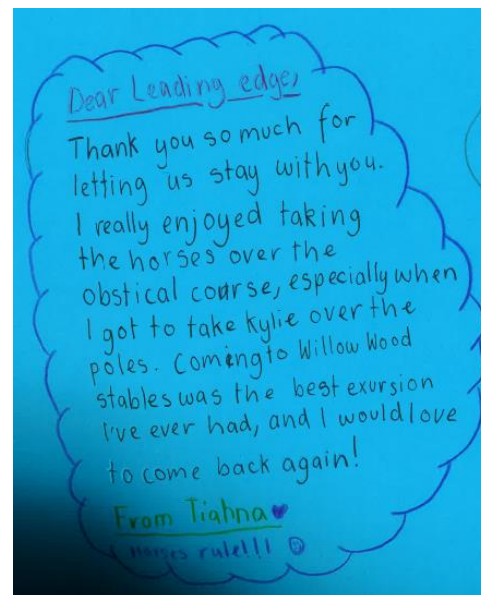 Dear Leading edge,
Thank you so much for
letting us stay with you.
I really enjoyed taking
the horses over the
obstical course, especially when
I got to take Kylie over the
poles. Coming to Willow Wood
stables was the best exursion
I've ever had, and I would love
to come back again!
From Tiahna
Horses rule!!!